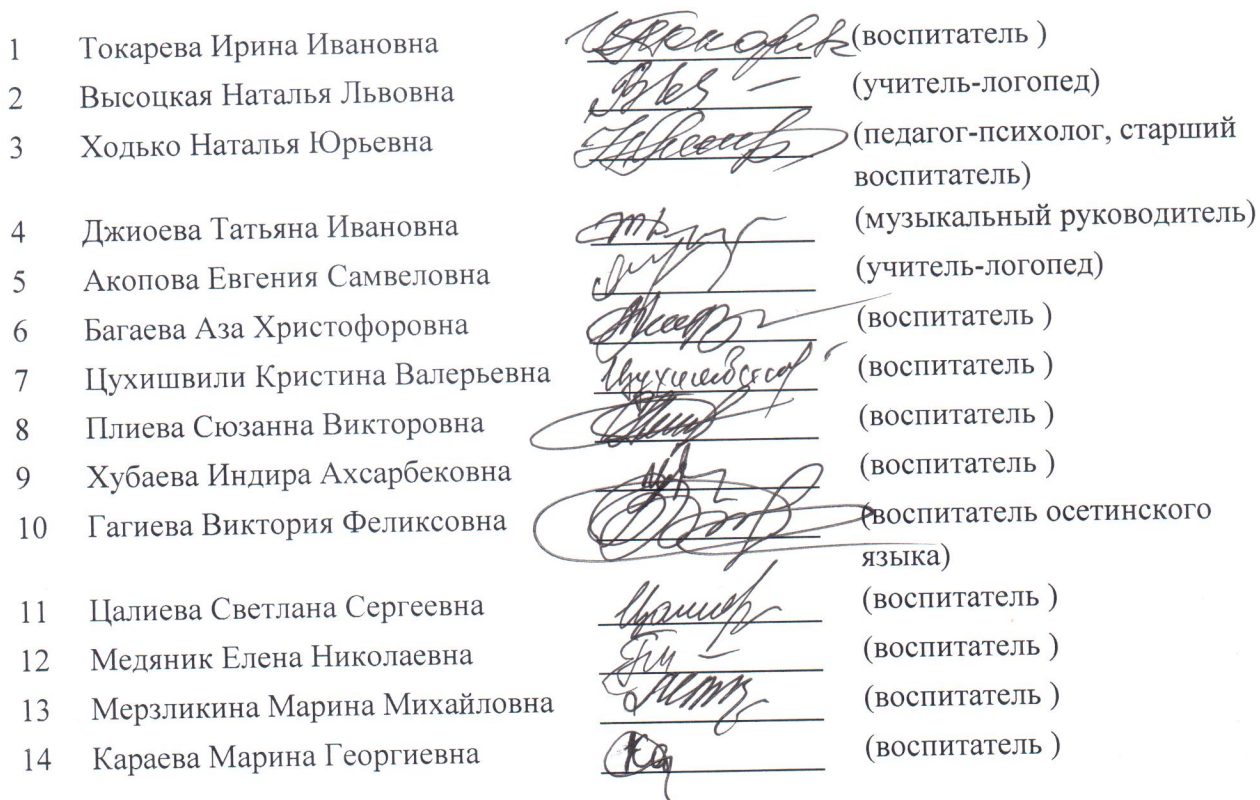 1 Токарева Ирина Ивановна (воспитатель )
2 Высоцкая Наталья Львовна (учитель-логопед)
3 Ходько Наталья Юрьевна (педагог-психолог, старший
воспитатель)
4 Джиоева Татьяна Ивановна (музыкальный руководитель)
5 Акопова Евгения Самвеловна (учитель-логопед)
6 Багаева Аза Христофоровна (воспитатель )
7 Цухишвили Кристина Валерьевна (воспитатель )
8 Плиева Сюзанна Викторовна (воспитатель )
9 Хубаева Индира Ахсарбековна (воспитатель )
10 Гагиева Виктория Феликсовна (воспитатель осетинского
языка)
11 Цалиева Светлана Сергеевна (воспитатель )
12 Медяник Елена Николаевна (воспитатель )
13 Мерзликина Марина Михайловна (воспитатель )
14 Караева Марина Георгиевна (воспитатель )